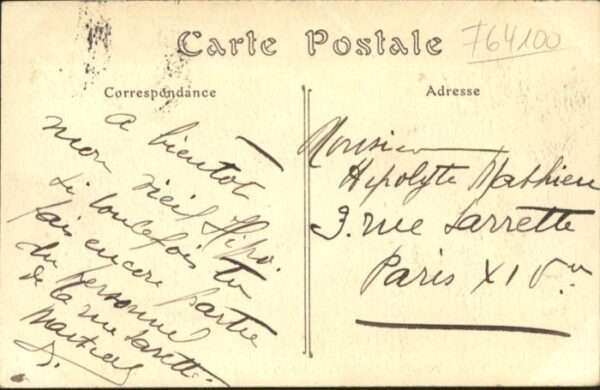 Carte Postale
764100
Correspondance
Adresse
A bientôt
mon vieil Hipo.
si toutefois tu
fais encore partie
du personnel
de la rue Sarrette
Monsieur
Hipolyte Mathieu
3. rue Sarrette
Paris XIV